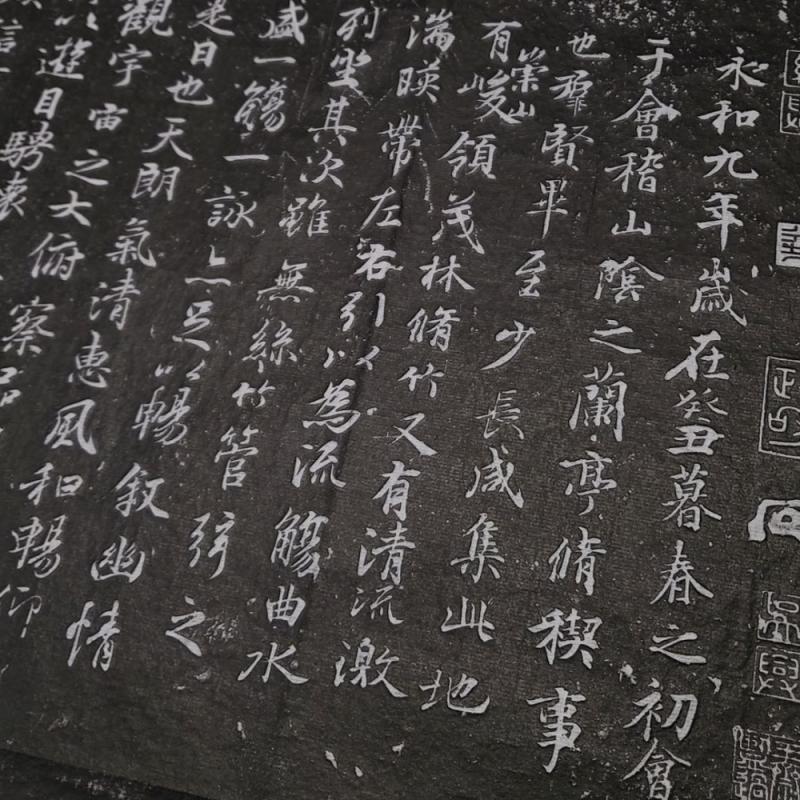 永和九年歲在癸丑暮春之初會
于會稽山陰之蘭亭脩稧事
也羣賢畢至少長咸集此地
有崇山峻領茂林脩竹又有清流激
湍暎帶左右引以為流觴曲水
列坐其次雖無絲竹管弦之
盛一觴一詠亦足以暢叙幽情
是日也天朗氣清惠風和暢仰
觀宇宙之大俯察品
以遊目騁懷
信